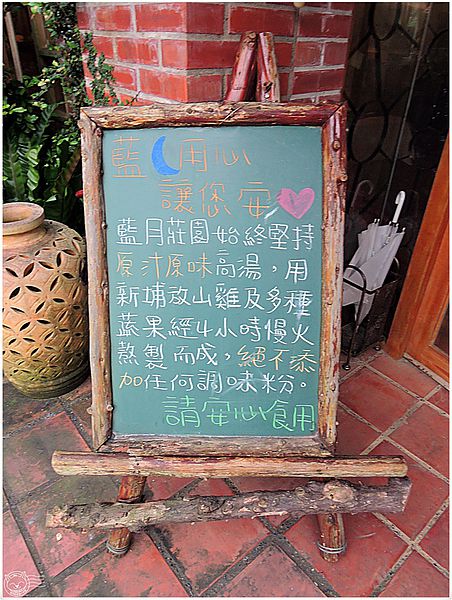 藍🌙用心
讓您安❤
藍月莊園始終堅持
原汁原味高湯，用
新埔放山雞及多種
蔬果經4小時慢火
熬製而成，絕不添
加任何調味粉。
請安心食用